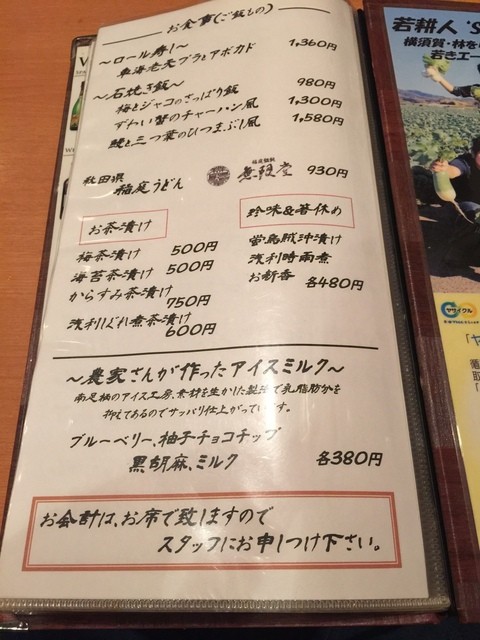 お食事(ご飯もの)
〜ロール寿し〜
車海老天プラとアボカド 1,360円
〜石焼き飯〜
梅とジャコのさっぱり飯 980円
ずわい蟹のチャーハン風 1,300円
鰻と三つ葉のひつまぶし風 1,580円
秋田県
稲庭うどん 無限堂 930円
お茶漬け
梅茶漬け 500円
海苔茶漬け 500円
からすみ茶漬け
750円
浅利しぐれ煮茶漬け
600円
珍味&箸休め
蛍烏賊沖漬け
浅利時雨煮
お新香 各480円
〜農家さんが作ったアイスミルク〜
南足柄のアイス工房、素材を生かした製法で乳脂肪分を
抑えてあるのでサッパリ仕上がっています。
ブルーベリー、柚子チョコチップ
黒胡麻、ミルク 各380円
お会計は、お席で致しますので
スタッフにお申しつけ下さい。
若耕人
横須賀・林を
若きエー
ヤサイクル